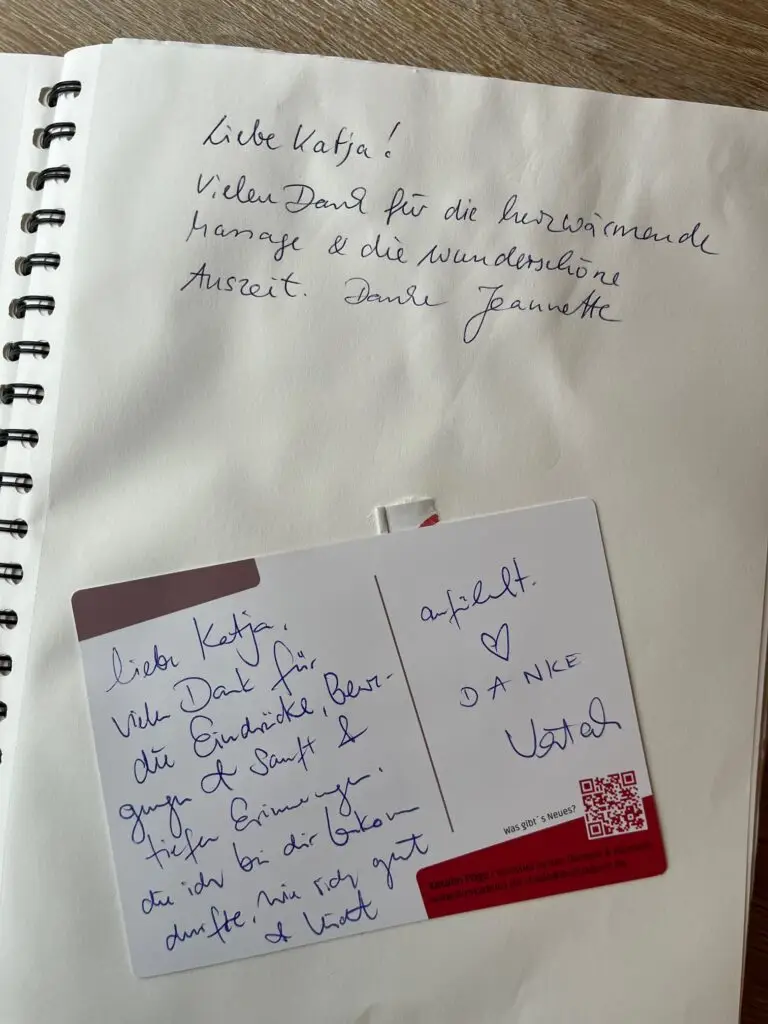 Liebe Katja!
Vielen Dank für die herzwärmende
Massage & die wunderschöne
Auszeit. Danke Jeannette
liebe Katja,
vielen Dank für
die Eindrücke, Bewe-
gungen & Sanft &
tiefen Erinnerungen.
die ich bei dir bekom
durfte, wie sich gut
& leicht
anfühlt.
♡
DANKE
Was gibt´s Neues?